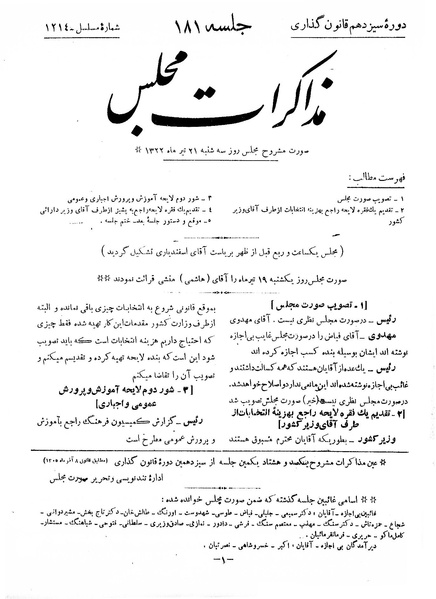 دورهٔ سیزدهم قانون گذاری
جلسه ۱۸۱
شمارهٔ مسلسل - ۱۲۱۴
مذاکرات مجلس
صورت مشروح مجلس روز سه شنبه ۲۱ تیر ماه ۱۳۲۲ *
فهرست مطالب:
۱ - تصویب صورت مجلس
۲ - تقدیم یک فقره لایحه راجع بهزینه انتخابات از طرف آقای وزیر
کشور
۳ - شور دوم لایحه آموزش و پرورش اجباری و عمومی
۴ - تقدیم یک فقره لایحه راجع به پشیز از طرف آقای وزیر دارائی
۵ - موقع و دستور جلسهٔ بعد - ختم جلسه .
(مجلس یکساعت و ربع قبل از ظهر بریاست آقای اسفندیاری تشکیل گردید)
صورت مجلس روز یکشنبه ۱۹ تیرماه را آقای (هاشمی) منشی قرائت نمودند **
[۱ - تصویب صورت مجلس]
رئیس - در صورت مجلس نظری نیست . آقای مهدوی
مهدوی - آقای فیاض را در صورت مجلس غایب بی اجازه
نوشته اند ایشان بوسیله بنده کسب اجازه کرده اند
رئیس - یک عده از آقایان هستند که کسالت داشتند و
غائب بی اجازه نوشته شده اند این مانعی ندارد و اصلاح خواهد شد.
در صورت مجلس نظری نیست (خیر) صورت مجلس تصویب شد
[۲ - تقدیم یک فقره لایحه راجع بهزینهٔ انتخابات از
طرف آقای وزیر کشور]
وزیر کشور - بطوریکه آقایان محترم مسبوق هستند
بموقع قانونی شروع به انتخابات چیزی باقی نمانده و البته
از طرف وزارت کشور مقدمات این کار تهیه شده فقط چیزی
که احتیاج داریم هزینه انتخابات است که باید تصویب
شود این است که بنده لایحه تهیه کرده و تقدیم میکنم و
تصویب آن را تقاضا میکنم
[۳ - شور دوم لایحه آموزش و پرورش
عمومی و اجباری]
رئیس - گزارش کمیسیون فرهنگ راجع بآموزش
و پرورش عمومی مطرح است
* عین مذاکرات مشروح یکصد و هشتاد یکمین جلسه از سیزدهمین دورهٔ قانون گذاری (مطابق قانون ۸ آذر ماه ۱۳۰۵)
ادارهٔ تندنویسی و تحریر صورت مجلس
** اسامی غائبین جلسه گذشته که ضمن صورت مجلس خوانده شده :
غائبین بی اجازه - آقایان : دکتر سمیعی - جلیلی - فیاض - طوسی - شهدوست - اورنگ - طالش خان - دکتر تاج بخش - مشیر دوانی -
شجاع - حمزه تاش - دکتر سنگ - مهذب - معتصم سنگ - فرشی - دادور - نمازی - صادق وزیری - سلطانی - فتوحی - شباهنگ - مستشار -
کامل ماکو - حریری - فرمانفرمائیان .
دیر آمدگان بی اجازه - آقایان : اکبر - خسروشاهی - نصرتیان .
-۱-